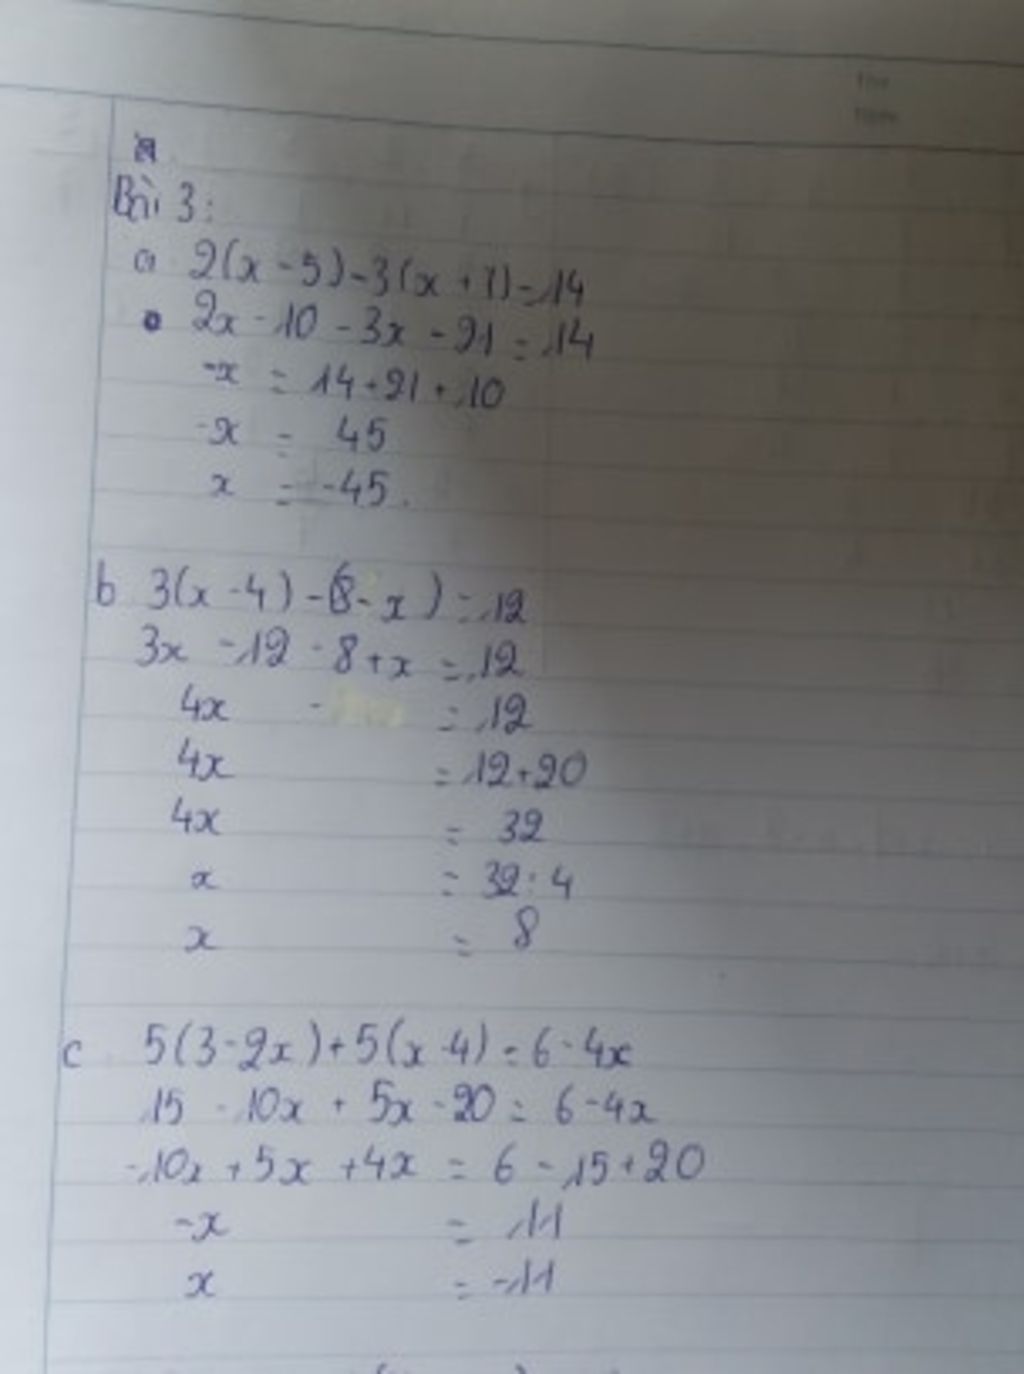 Bài 3:
a 2(x - 5) - 3(x + 7) = 14
2x - 10 - 3x - 21 = 14
-x = 14 + 21 + 10
-x = 45
x = -45.
b 3(x - 4) - (8 - x) = 12
3x - 12 - 8 + x = 12
4x - = 12
4x = 12 + 20
4x = 32
x = 32 : 4
x = 8
c 5(3 - 2x) + 5(x - 4) = 6 - 4x
15 - 10x + 5x - 20 = 6 - 4x
-10x + 5x + 4x = 6 - 15 + 20
-x = 11
x = -11